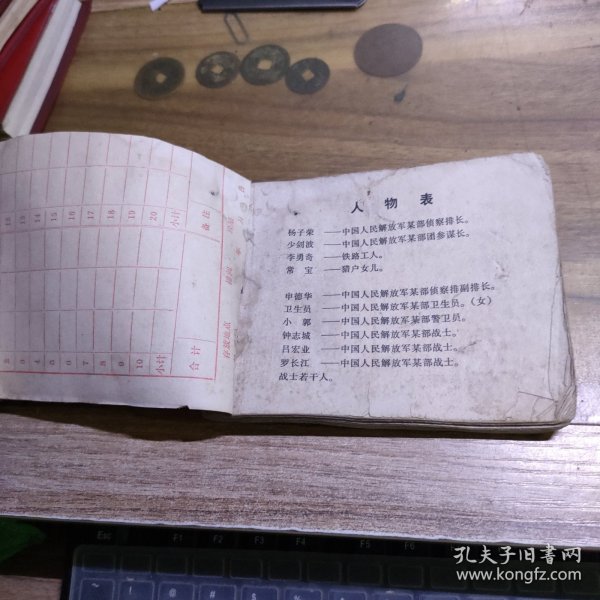 人物表
杨子荣——中国人民解放军某部侦察排长。
少剑波——中国人民解放军某部团参谋长。
李勇奇——铁路工人。
常宝——猎户女儿。
申德华——中国人民解放军某部侦察排副排长。
卫生员——中国人民解放军某部卫生员。(女)
小郭——中国人民解放军某部警卫员。
钟志城——中国人民解放军某部战士。
吕宏业——中国人民解放军某部战士。
罗长江——中国人民解放军某部战士。
战士若干人。
13
14
15
16
17
18
19
20
小计
备注
3
4
5
6
7
8
9
10
小计
合计
Esc
F1
F2
F3
F4
F5
F6
孔夫子旧书网
www.kongfz.com